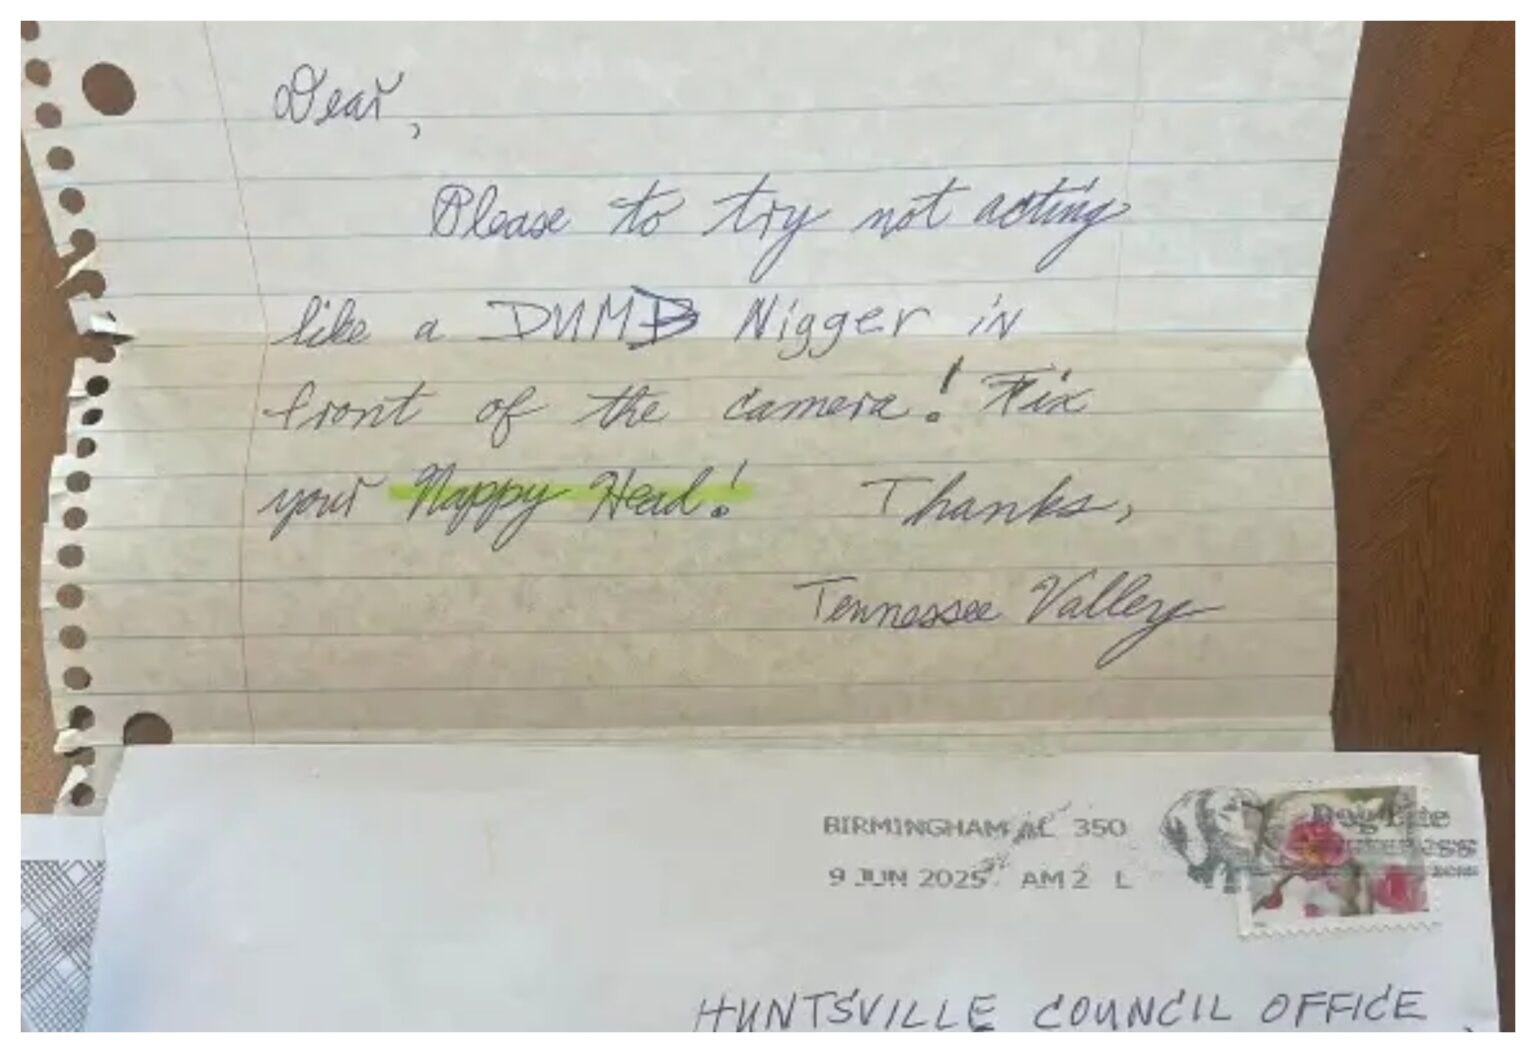 Dear,
Please to try not acting
like a DUMB Nigger in
front of the camera! Fix
your Nappy Head! Thanks,
Tennessee Valley
BIRMINGHAM AL 350
9 JUN 2025 AM 2 L
HUNTSVILLE COUNCIL OFFICE